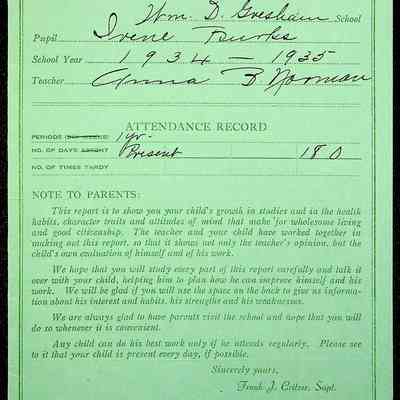 Wm. D. Gresham School
Pupil Irene Burks
School Year 1934 — 1935
Teacher Anna B Norman
ATTENDANCE RECORD
PERIODS (SIX WEEKS) 1 yr.
NO. OF DAYS ABSENT Present 180
NO. OF TIMES TARDY
NOTE TO PARENTS:
This report is to show you your child's growth in studies and in the health
habits, character traits and attitudes of mind that make for wholesome living
and good citizenship. The teacher and your child have worked together in
making out this report, so that it shows not only the teacher's opinion, but the
child's own evaluation of himself and of his work.
We hope that you will study every part of this report carefully and talk it
over with your child, helping him to plan how he can improve himself and his
work. We will be glad if you will use the space on the back to give us informa-
tion about his interest and habits, his strengths and his weaknesses.
We are always glad to have parents visit the school and hope that you will
do so whenever it is convenient.
Any child can do his best work only if he attends regularly. Please see
to it that your child is present every day, if possible.
Sincerely yours,
Frank J. Critzer, Supt.